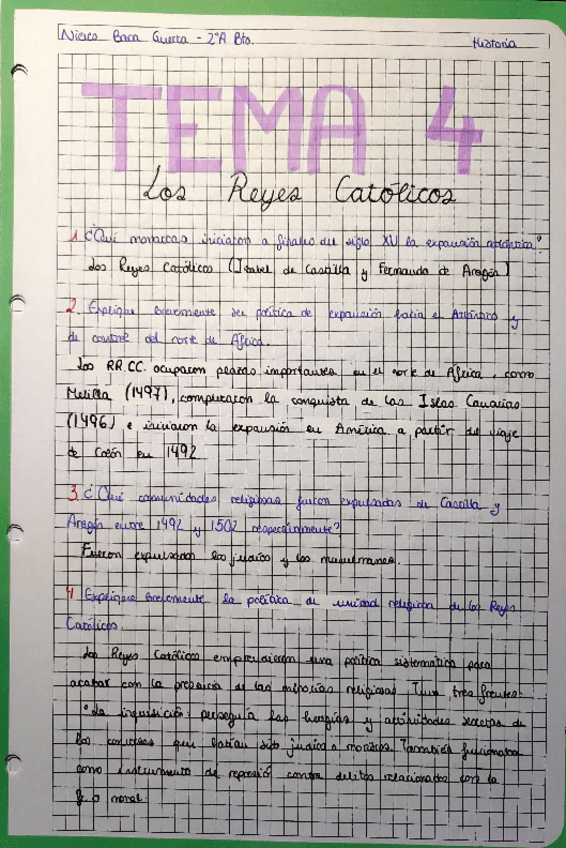 Nieves Baca Guerra - 2ºA Bto.
Historia
TEMA 4
Los Reyes Católicos
1. ¿Qué monarcas iniciaron a finales del siglo XV la expansión atlántica?
Los Reyes Católicos (Isabel de Castilla y Fernando de Aragón)
2. Explique brevemente su política de expansión hacia el Atlántico y
de control del norte de África.
Los RR.CC. ocuparon plazas importantes en el norte de África, como
Melilla (1497), completaron la conquista de las Islas Canarias
(1496) e iniciaron la expansión en América a partir del viaje
de Colón en 1492
3. ¿Qué comunidades religiosas fueron expulsadas de Castilla y
Aragón entre 1492 y 1502 respectivamente?
Fueron expulsados los judíos y los musulmanes.
4 Explique brevemente la política de unidad religiosa de los Reyes
Católicos.
Los Reyes Católicos emprendieron una política sistemática para
acabar con la presencia de las minorías religiosas. Tuvo tres frentes:
• La inquisición: perseguía las herejías y actividades secretas de
los conversos que habían sido judíos o moriscos. También funcionaba
como instrumento de represión contra delitos relacionados con la
fe o moral.